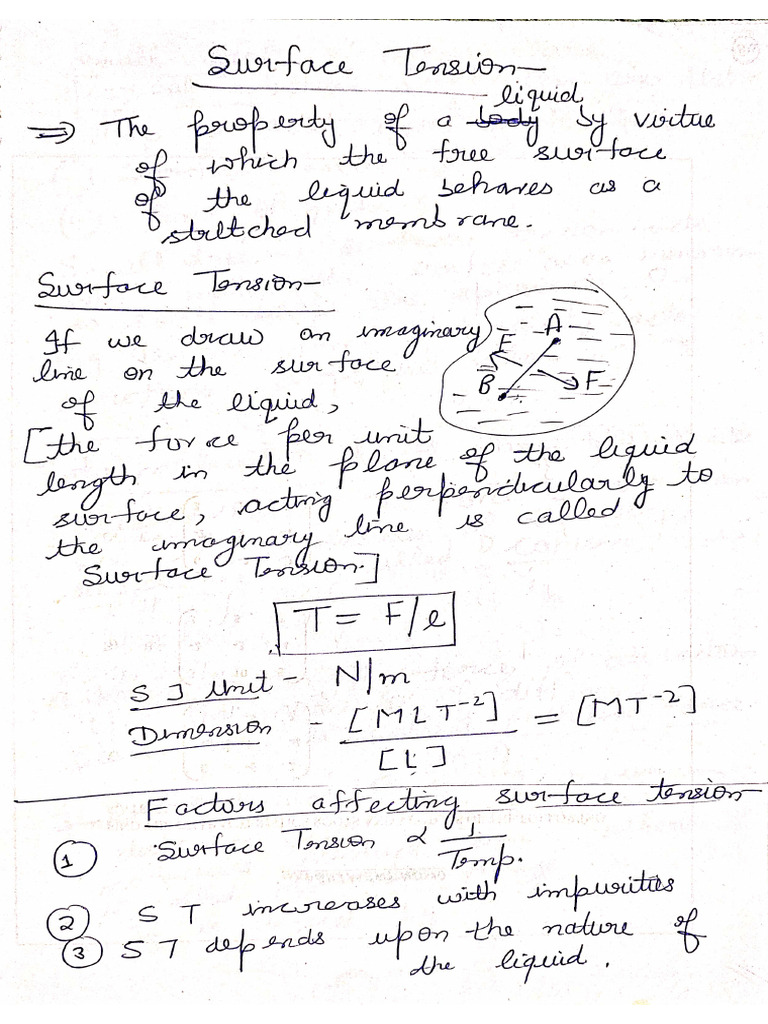 Surface Tension-
liquid
⇒ The property of a body by virtue
of which the free surface
of the liquid behaves as a
stretched membrane.
Surface Tension-
If we draw an imaginary
line on the surface
of the liquid,
A
F
B
F
[the force per unit
length in the plane of the liquid
surface, acting perpendicularly to
the imaginary line is called
Surface Tension.]
T = F/l
S I Unit - N/m
Dimension - [MLT⁻²] / [L] = [MT⁻²]
Factors affecting surface tension-
① Surface Tension ∝ 1/Temp.
② S T increases with impurities
③ S T depends upon the nature of
the liquid.